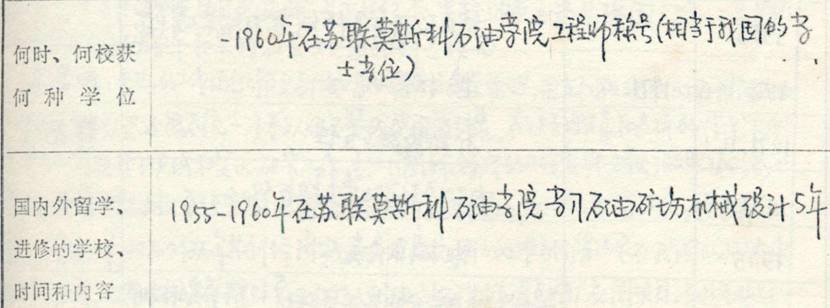 何时、何校获
何种学位
-1960年在苏联莫斯科石油学院工程师称号(相当于我国的学
士学位)
国内外留学、
进修的学校、
时间和内容
1955-1960年在苏联莫斯科石油学院学习石油矿场机械设计5年